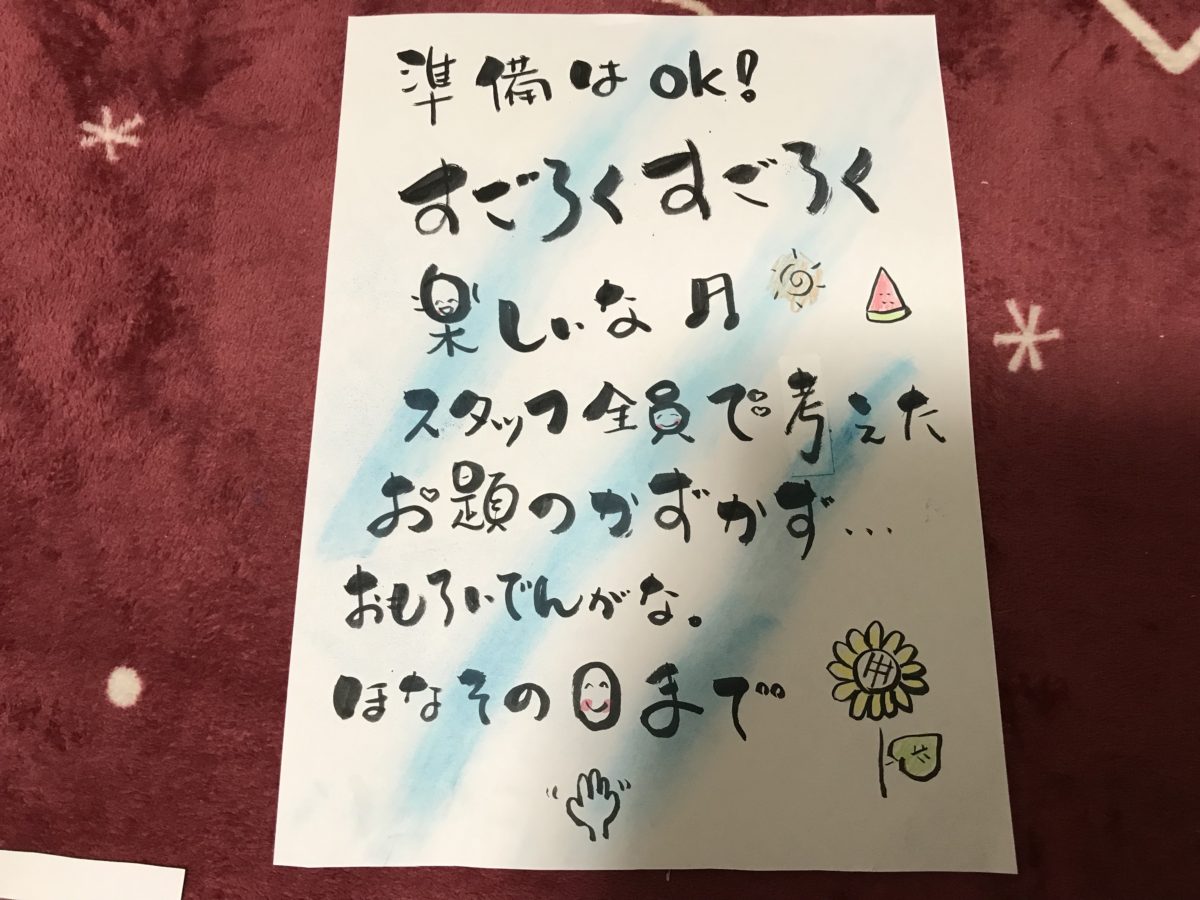 準備はok!
すごろくすごろく
楽しいな♫
スタッフ全員で考えた
お題のかずかず…
おもろいでんがな。
ほなその日まで